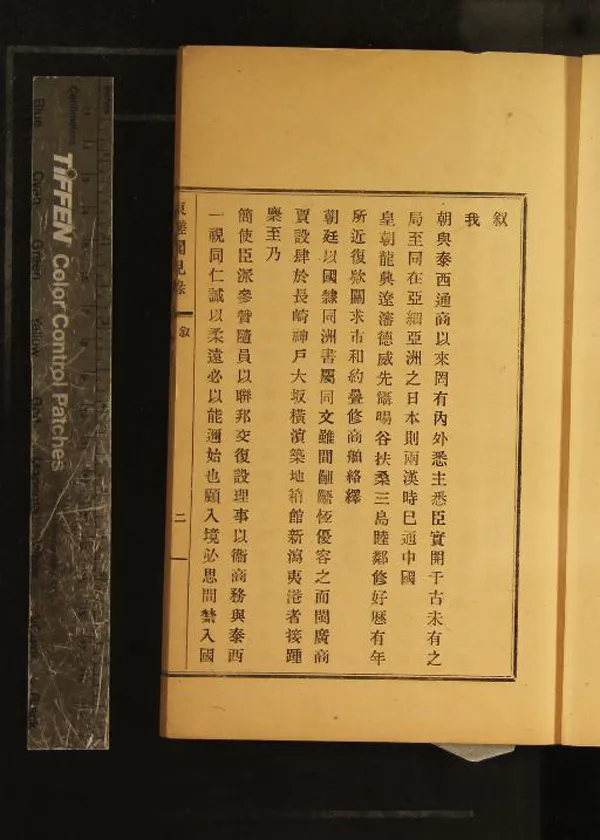 叙
我
朝與泰西通商以來罔有內外悉主悉臣實開千古未有之
局至同在亞細亞洲之日本則兩漢時已通中國
皇朝龍興遼瀋德威先暢暘谷扶桑三島睦鄰修好歷有年
所近復欵關求市和約疊修商舶絡繹
朝廷以國隸同洲書屬同文雖間齟齬恆優容之而閩廣商
賈設肆於長崎神戶大坂橫濱築地箱館新瀉夷港者接踵
麇至乃
簡使臣派參贊隨員以聯邦交復設理事以衞商務與泰西
一視同仁誠以柔遠必以能邇始也顧入境必思問禁入國
東 聞見錄
叙
二
TIFFEN Color Control Patches
Centimetres
Blue
Cyan
Green
Yellow
Red